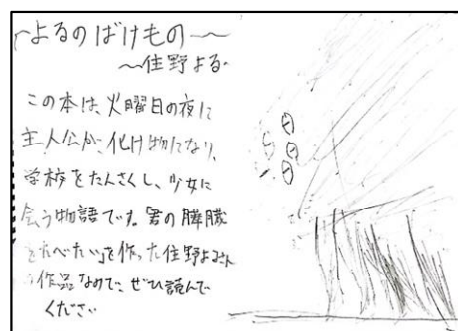 ~よるのばけもの~
~住野よる
この本は、火曜日の夜に
主人公が、化け物になり、
学校をたんさくし、少女に
会う物語です。君の膵臓
をたべたい」を作った住野よるさん
の作品なので、ぜひ読んで
ください